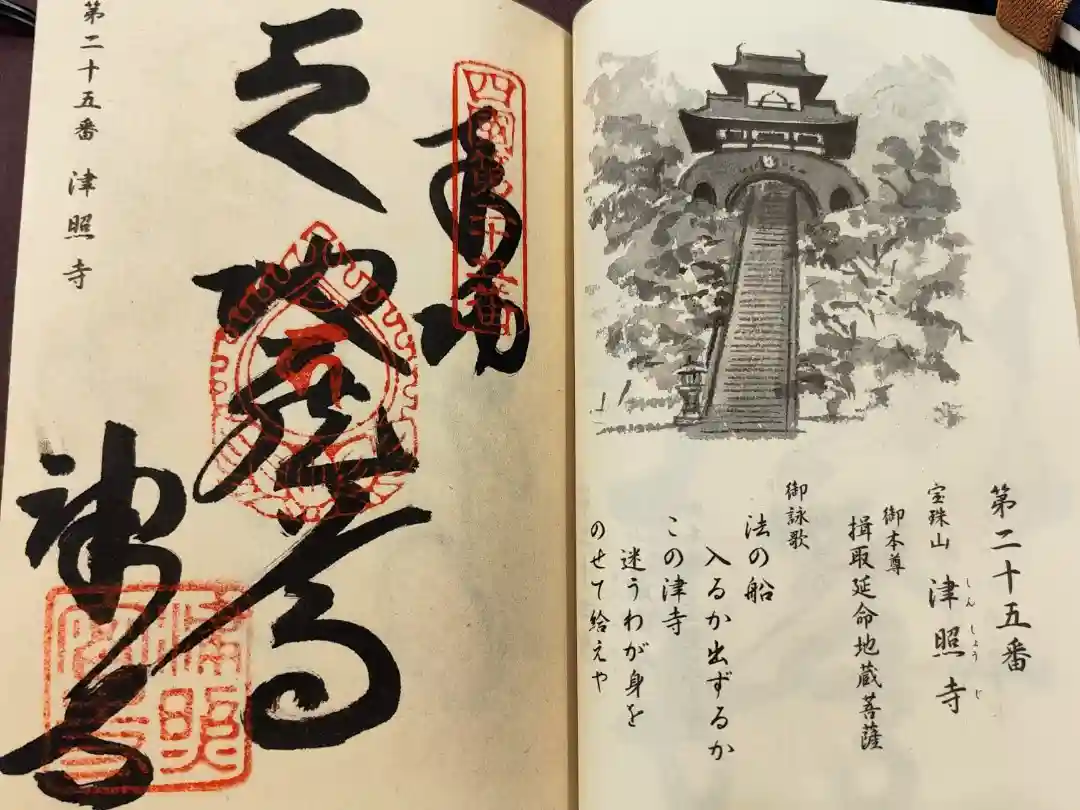 第二十五番
宝珠山 津照寺
しんしょうじ
御本尊
揖取延命地蔵菩薩
御詠歌
法の船
入るか出ずるか
この津寺
迷うわが身を
のせて給えや
四國第二十五番
奉納
第二十五番 津照寺